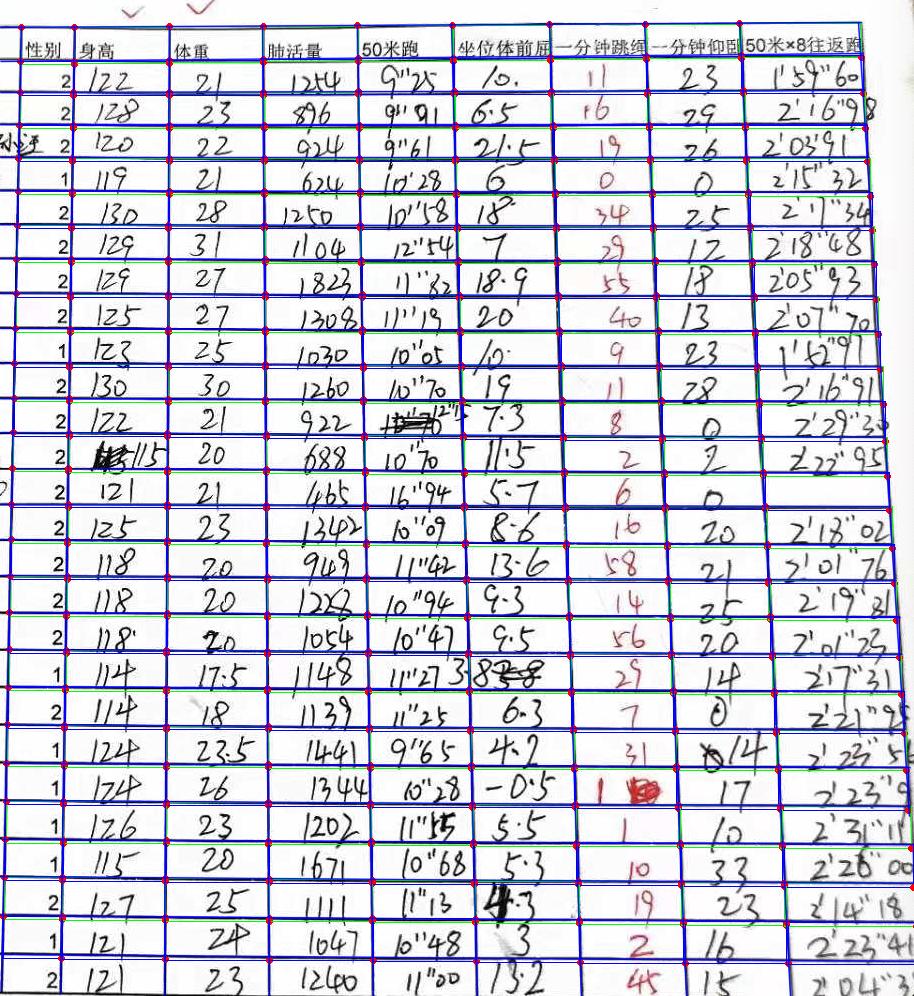 性别 身高 体重 肺活量 50米跑 坐位体前屈 一分钟跳绳 一分钟仰卧 50米×8往返跑
2 122 21 1254 9"25 10. 11 23 1'59"60
2 128 23 896 9"91 6.5 16 29 2'16"98
2 120 22 924 9"61 21.5 19 26 2'03'91
1 119 21 624 10'28 6 0 0 2'15"32
2 130 28 1250 10"58 18 34 25 2'17"34
2 129 31 1104 12"54 7 29 12 2'18"48
2 129 27 1823 11"82 18.9 55 18 2'05"93
2 125 27 1308 11"19 20 40 13 2'07"70
1 123 25 1030 10"05 10. 9 23 1'52"97
2 130 30 1260 10"70 19 11 28 2'16"91
2 122 21 922 12"15 7.3 8 0 2'29"30
2 115 20 688 10"70 11.5 2 2 2'22"95
2 121 21 465 16"94 5.7 6 0
2 125 23 1342 10"09 8.6 16 20 2'18"02
2 118 20 949 11"42 13.6 58 21 2'01"76
2 118 20 1228 10"94 9.3 14 25 2'19"81
2 118 20 1054 10"47 9.5 56 20 2'01"23
1 114 17.5 1148 11"27 3.8 29 14 2'17"31
2 114 18 1139 11"25 6.3 7 0 2'21"95
1 124 23.5 1441 9"65 4.2 31 14 2'23"5
1 124 26 1344 10"28 -0.5 1 17 2'23"9
1 126 23 1202 11"55 5.5 1 10 2'31"11
1 115 20 1671 10"68 5.3 10 33 2'26"00
2 127 25 1111 11"13 4.3 19 23 2'14"18
1 121 24 1047 10"48 3 2 16 2'23"41
2 121 23 1240 11"00 13.2 45 15 2'04"3